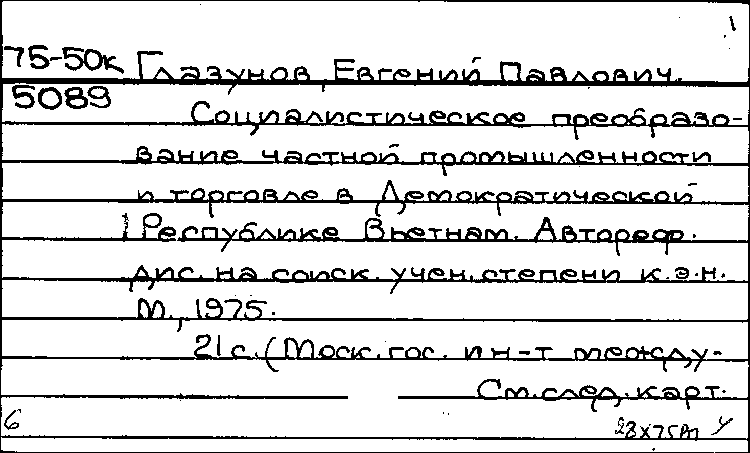 1
75-50к Глазунов, Евгений Павлович.
5089
Социалистическое преобразо-
вание частной промышленности
и торговле в Демократической
Республике Вьетнам. Автореф.
дис. на соиск. учен. степени к.э.н.
М., 1975.
21 с. (Моск. гос. ин-т между-
См. след. карт.
6